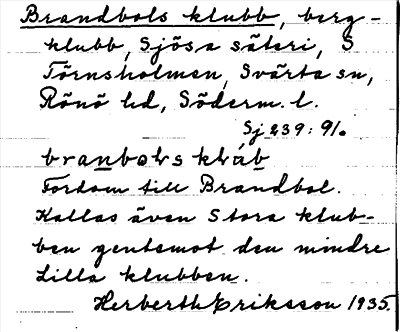 Brandbols klubb, berg-
klubb, Sjösa säteri, S
Törnsholmen, Svärta sn,
Rönö hd, Söderm. l.
Sj 239: 9/0
branbols klåb
Fordom till Brandbol.
Kallas även Stora klub-
ben gentemot den mindre
Lilla klubben.
Herberth Eriksson 1935.